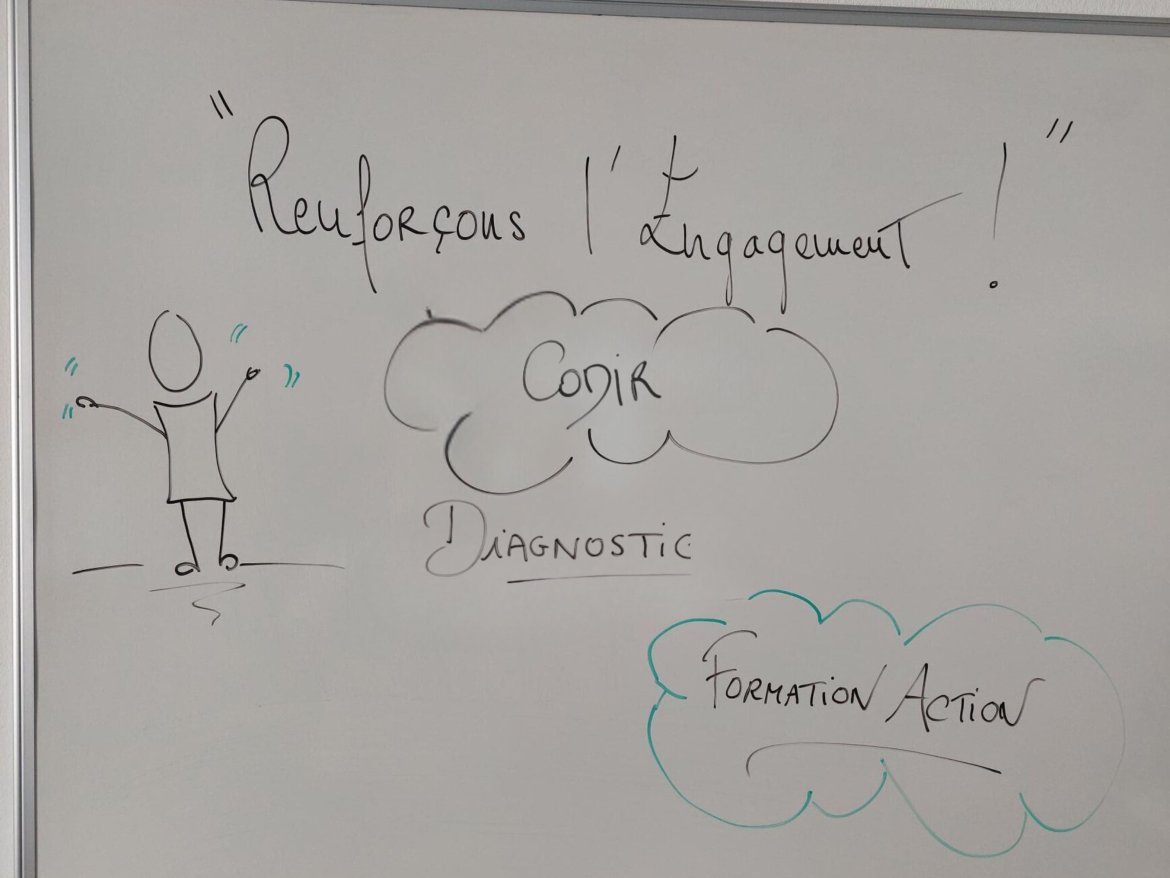 "Renforçons l'Engagement !"
CODIR
DIAGNOSTIC
FORMATION ACTION